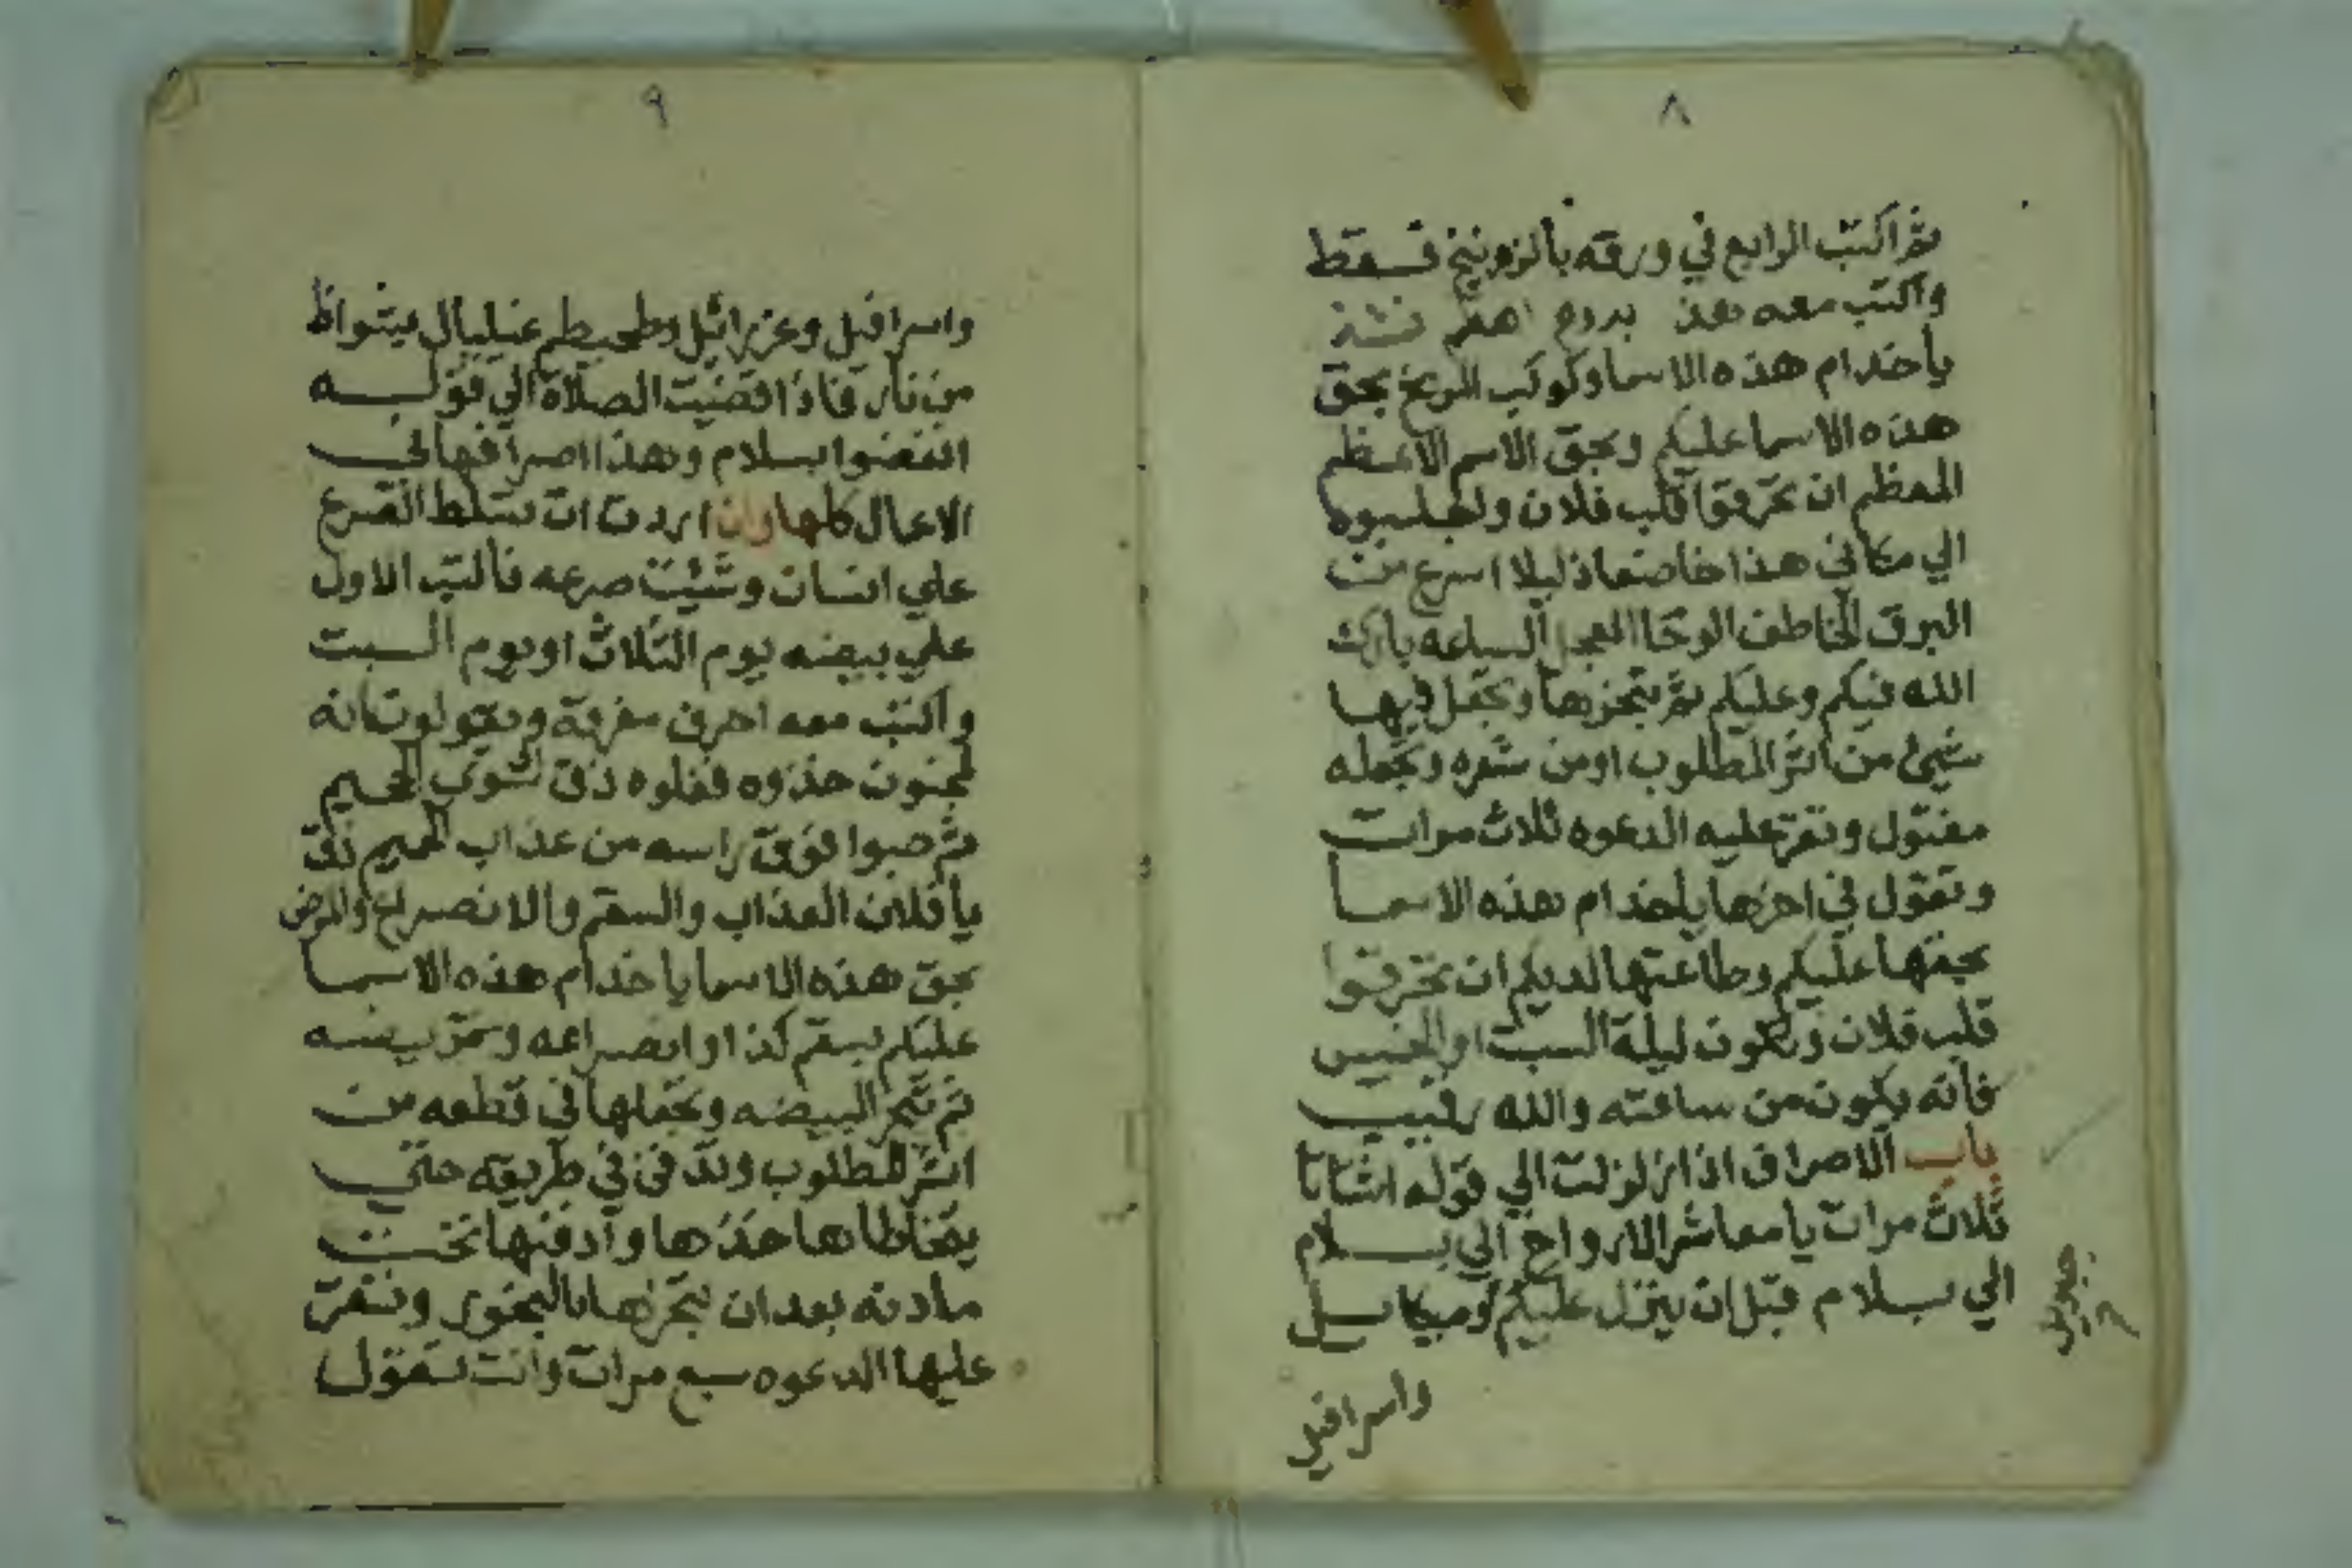 ٨
ثم اكتب الرابع في ورقه بالزرنيخ فسقط
واكتب معه هذ بدوح اهم
ياخدام هذه الاسما وكوكب المريخ بحق
هذه الاسما عليكم وبحق الاسم الاعظم
المعظم ان تحرقوا قلب فلان وتجلبوه
الي مكاني هذا خاضعا ذليلا اسرع من
البرق الخاطف الوحا العجل الساعه بارك
الله فيكم وعليكم ثم تبخرها وتجعل فيها
شيئ من اثر المطلوب اومن شعره وتجعله
مفتول وتقر عليه الدعوه ثلاث مرات
وتقول في اخرها ياخدام هذه الاسما
بحقها عليكم وطاعتها لديكم ان تحرقوا
قلب فلان وتكون ليلة السبت او الخميس
فانه يكون من ساعته والله رقيب
باب الاصراف اذا زلزلت الي قوله اشتاتا
ثلاث مرات يا معاشر الارواح الي بسلام
الي بسلام قبل ان ينزل عليكم وميكاييل
جبريل
واسرافيل
٩
واسرافيل وعزرائيل وطحيطم بشواظ
من نار فاذا قضيت الصلاة الي قوله
انفضوا بسلام وهذا اصرافها في
الاعمال كلها وان اردت ان تسلط الصرع
علي انسان وشئيت صرعه فاكتب الاول
علي بيضه يوم الثلاث او يوم السبت
واكتب معه احرف مفرقة ويقولون انه
لمجنون خذوه فغلوه ذق الجحيم
ثم صبوا فوق راسه من عذاب الحميم ذق
يا فلان العذاب والسقم والانصراع والمرض
بحق هذه الاسما يا خدام هذه الاسما
عليكم بسقم كذا او انصراعه وتبخر بيضه
ثم البيضه وتجعلها في قطعه من
اثر المطلوب وتدفن في طريقه حتي
يتخاطاها خذها وادفنها تحت
بعد ان تبخرها بالبخور وتقر
عليها الدعوه سبع مرات وانت تقول